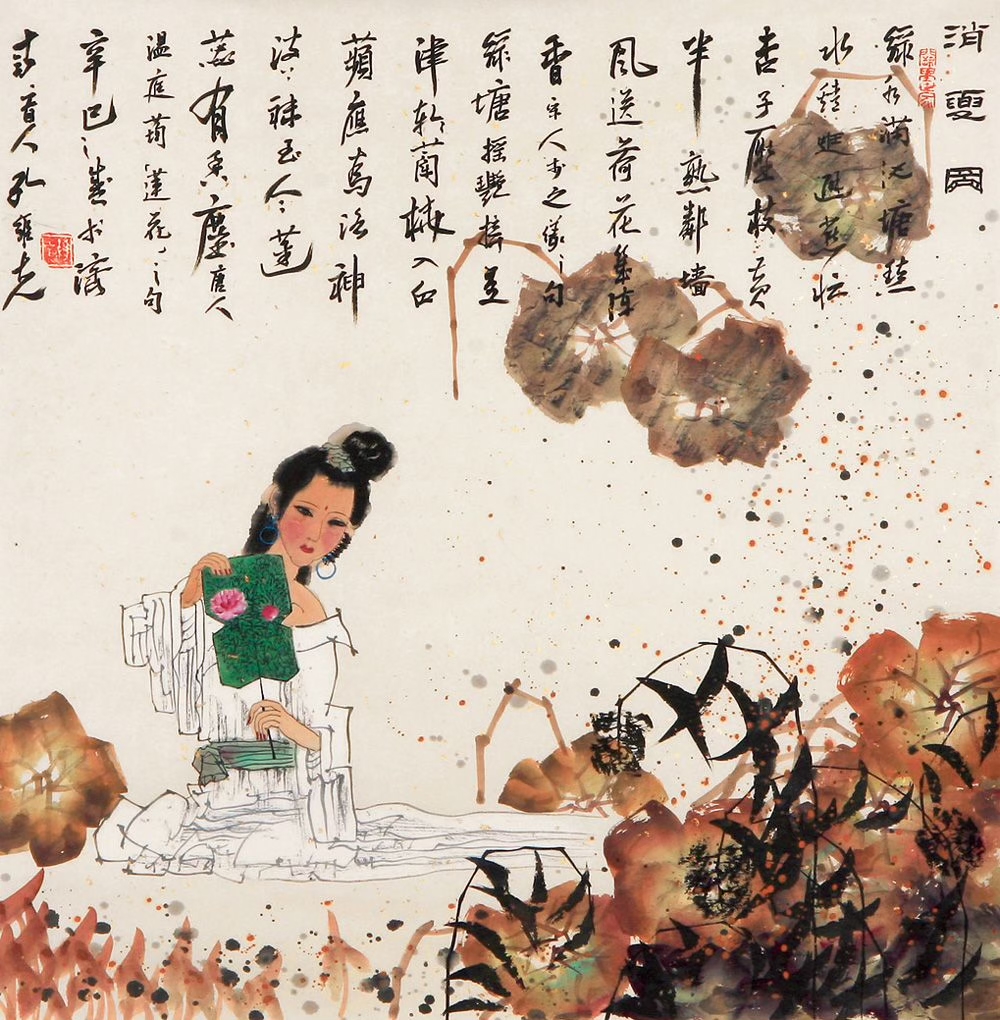 消夏圖
綠水滿池塘點
水蜻蜓避燕忙
杏子壓枝黃
半熟鄰墙
風送荷花幾陣
香宋人李之儀之句
綠塘搖艷接星
津軋蘭橈入白
蘋應為洛神
波上襪至今蓮
蕊有香塵唐人
溫庭筠蓮花之句
辛巳之歲於濟
人孔維克